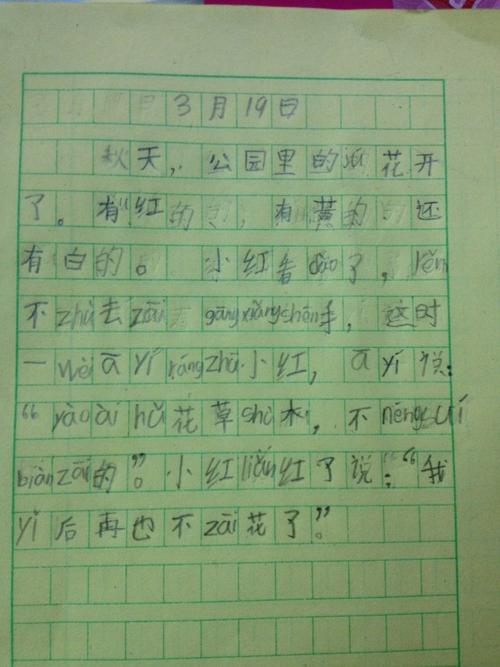 3月19日
秋天，公园里的花开
了。有红的，有黄的 还
有白的。小红看dào了，rěn
不zhù去zāi gāng xiǎng shēn手，这时
一wèi ā yí ráng zhā小红，ā yí说：
“yào ài hǔ花草shù木，不néng suí
biàn zāi的”。小红liǎn红了说：“我
yǐ后再也不zāi花了”。